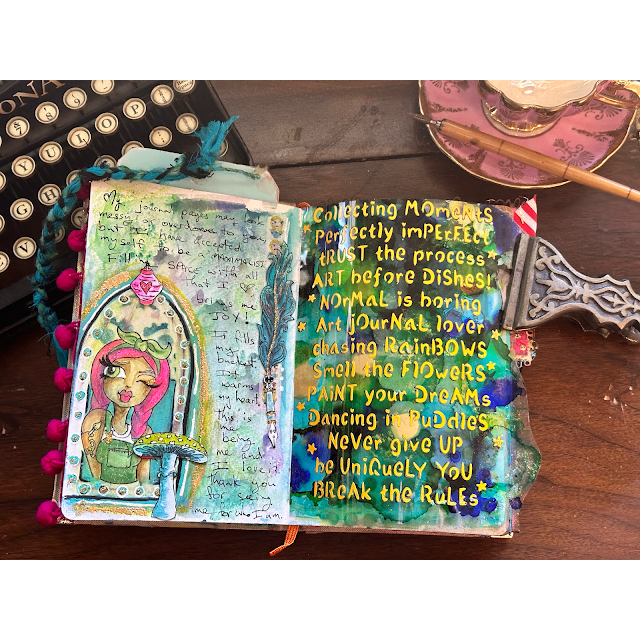 ONA
My journal pages may look
messy or overdone to you
but I have accepted
myself to be a maximalist
Filling space with all
that I
brings me
JOY!
It fills
my
bucket
It
warms
my heart
this is
me
being
me and
I love it
thank you
for seeing
me for who I am.
Collecting MOmeNtS
Perfectly imPErFEct
tRUST the process
ART before DiSHeS!
NOrMaL is boring
Art jOurNaL lover
chasing RainBOWS
Smell the FlOWeRS
PAiNT your DreAMs
Dancing in PuDdleS
NeVer giVe UP
be UNiQueLY YoU
BReAk the RuLEs